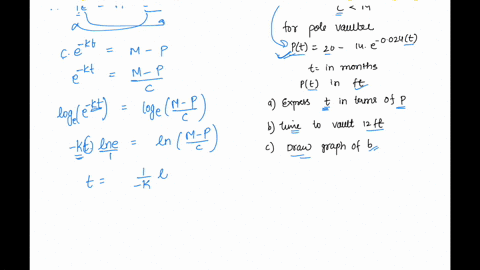 c. e^-kt = M - P
e^-kt = M-P/C
loge(e^-kt) = loge(M-P/C)
-k(t) lne/1 = ln(M-P/C)
t = 1/-K l
C < 14
for pole vaulter
P(t) = 20 - 14. e^-0.024(t)
t = in months
P(t) in ft
a) Express t in terms of P
b) time to vault 12 ft
c) Draw graph of b